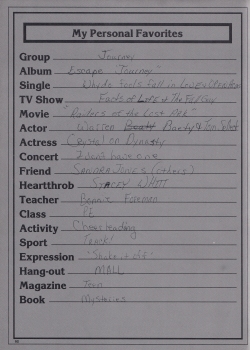 My Personal Favorites
Group Journey
Album Escape "Journey"
Single Why do fools fall in love
TV Show Facts of Life & The Fall Guy
Movie "Raiders of the Lost Ark"
Actor Warren Beatty & Tom
Actress Crystal on Dynasty
Concert
Friend Sandra Jones (others)
Heartthrob Stacey
Teacher Bonnie Foreman
Class P.E.
Activity Cheerleading
Sport Track!
Expression "Shake it off"
Hang-out MALL
Magazine Teen
Book Mysteries